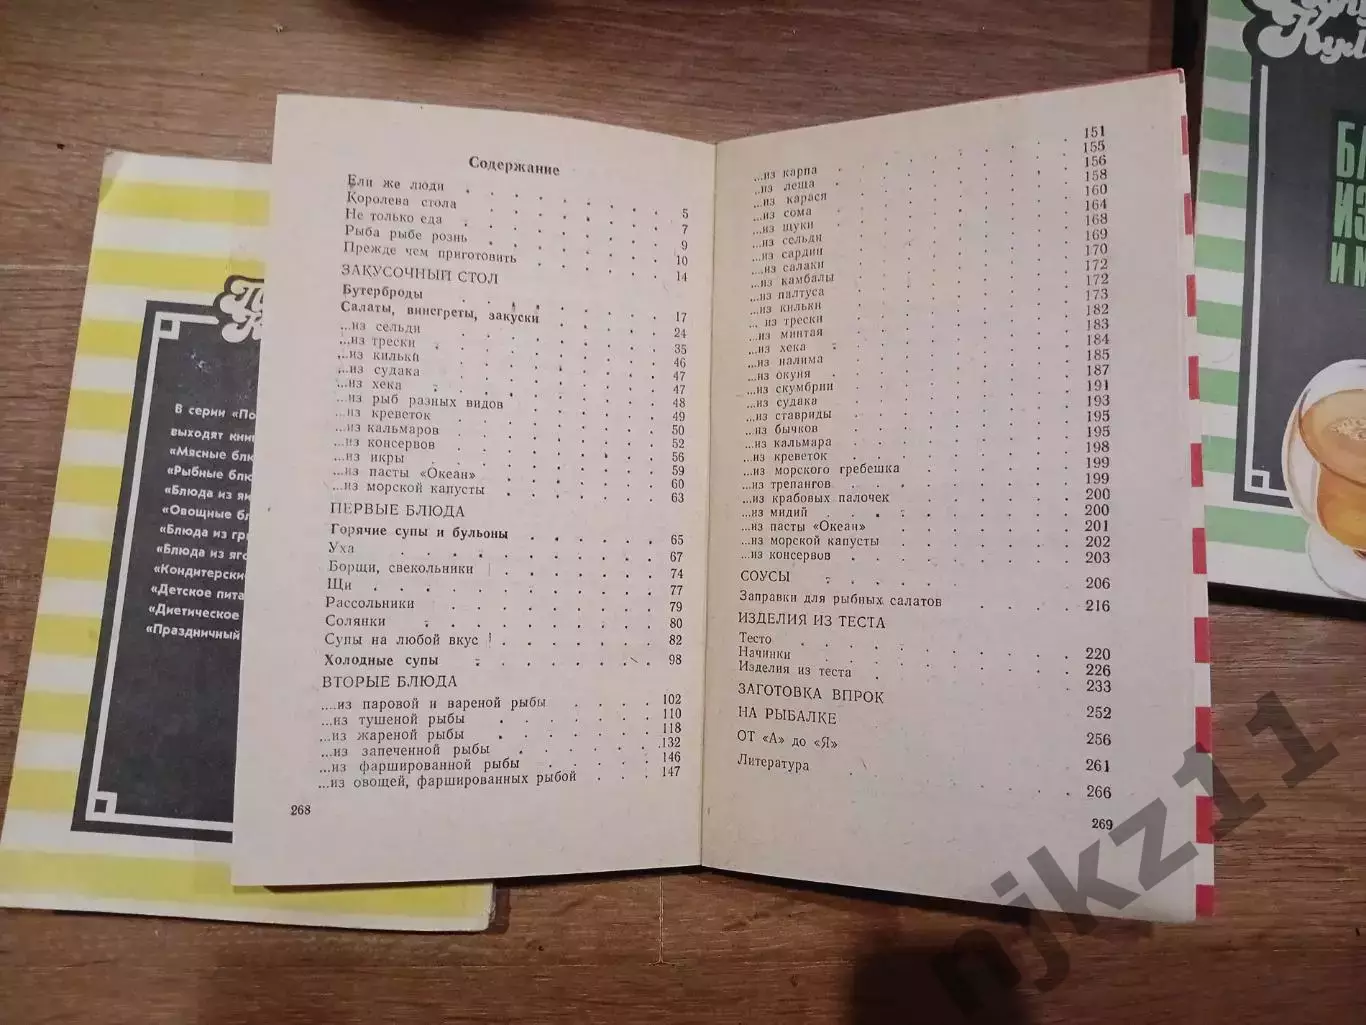 Содержание
Ели же люди . . . . . . . 5
Королева стола . . . . . . . 7
Не только еда . . . . . . . 9
Рыба рыбе рознь . . . . . . . 10
Прежде чем приготовить . . . . . 14
ЗАКУСОЧНЫЙ СТОЛ
Бутерброды . . . . . . . 17
Салаты, винегреты, закуски . . . . 24
...из сельди . . . . . . . 35
...из трески . . . . . . . 46
...из кильки . . . . . . . 47
...из судака . . . . . . . 47
...из хека . . . . . . . 48
...из рыб разных видов . . . . . 49
...из креветок . . . . . . . 50
...из кальмаров . . . . . . . 52
...из консервов . . . . . . . 56
...из икры . . . . . . . 59
...из пасты «Океан» . . . . . 60
...из морской капусты . . . . . 63
ПЕРВЫЕ БЛЮДА
Горячие супы и бульоны . . . . . 65
Уха . . . . . . . 67
Борщи, свекольники . . . . . 74
Щи . . . . . . . 77
Рассольники . . . . . . . 79
Солянки . . . . . . . 80
Супы на любой вкус . . . . . 82
Холодные супы . . . . . . . 98
ВТОРЫЕ БЛЮДА
....из паровой и вареной рыбы . . . . 102
...из тушеной рыбы . . . . . 110
...из жареной рыбы . . . . . 118
...из запеченной рыбы . . . . . 132
...из фаршированной рыбы . . . . 146
...из овощей, фаршированных рыбой . . . 147
268
...из карпа . . . . . . . 151
...из леща . . . . . . . 155
...из карася . . . . . . . 156
...из сома . . . . . . . 158
...из щуки . . . . . . . 160
...из сельди . . . . . . . 164
...из сардин . . . . . . . 168
...из салаки . . . . . . . 169
...из камбалы . . . . . . . 170
...из палтуса . . . . . . . 172
...из кильки . . . . . . . 172
... из трески . . . . . . . 173
...из минтая . . . . . . . 182
...из хека . . . . . . . 183
...из налима . . . . . . . 184
...из окуня . . . . . . . 185
...из скумбрии . . . . . . . 187
...из судака . . . . . . . 191
...из ставриды . . . . . . . 193
...из бычков . . . . . . . 195
...из кальмара . . . . . . . 195
...из креветок . . . . . . . 198
...из морского гребешка . . . . . 199
...из трепангов . . . . . . . 199
...из крабовых палочек . . . . . 200
...из мидий . . . . . . . 200
...из пасты «Океан» . . . . . 201
...из морской капусты . . . . . 202
...из консервов . . . . . . . 203
СОУСЫ . . . . . . . 206
Заправки для рыбных салатов . . . . 216
ИЗДЕЛИЯ ИЗ ТЕСТА
Тесто . . . . . . . 220
Начинки . . . . . . . 226
Изделия из теста . . . . . . . 233
ЗАГОТОВКА ВПРОК . . . . . 252
НА РЫБАЛКЕ . . . . . . . 256
ОТ «А» до «Я» . . . . . . . 261
Литература . . . . . . . 266
269
В серии «По
выходят книг
«Мясные блю
«Рыбные блю
«Блюда из яи
«Овощные бл
«Блюда из гр
«Блюда из яго
«Кондитерски
«Детское пита
«Диетическое
«Праздничный
БЛ
ИЗ
И М
njkz11